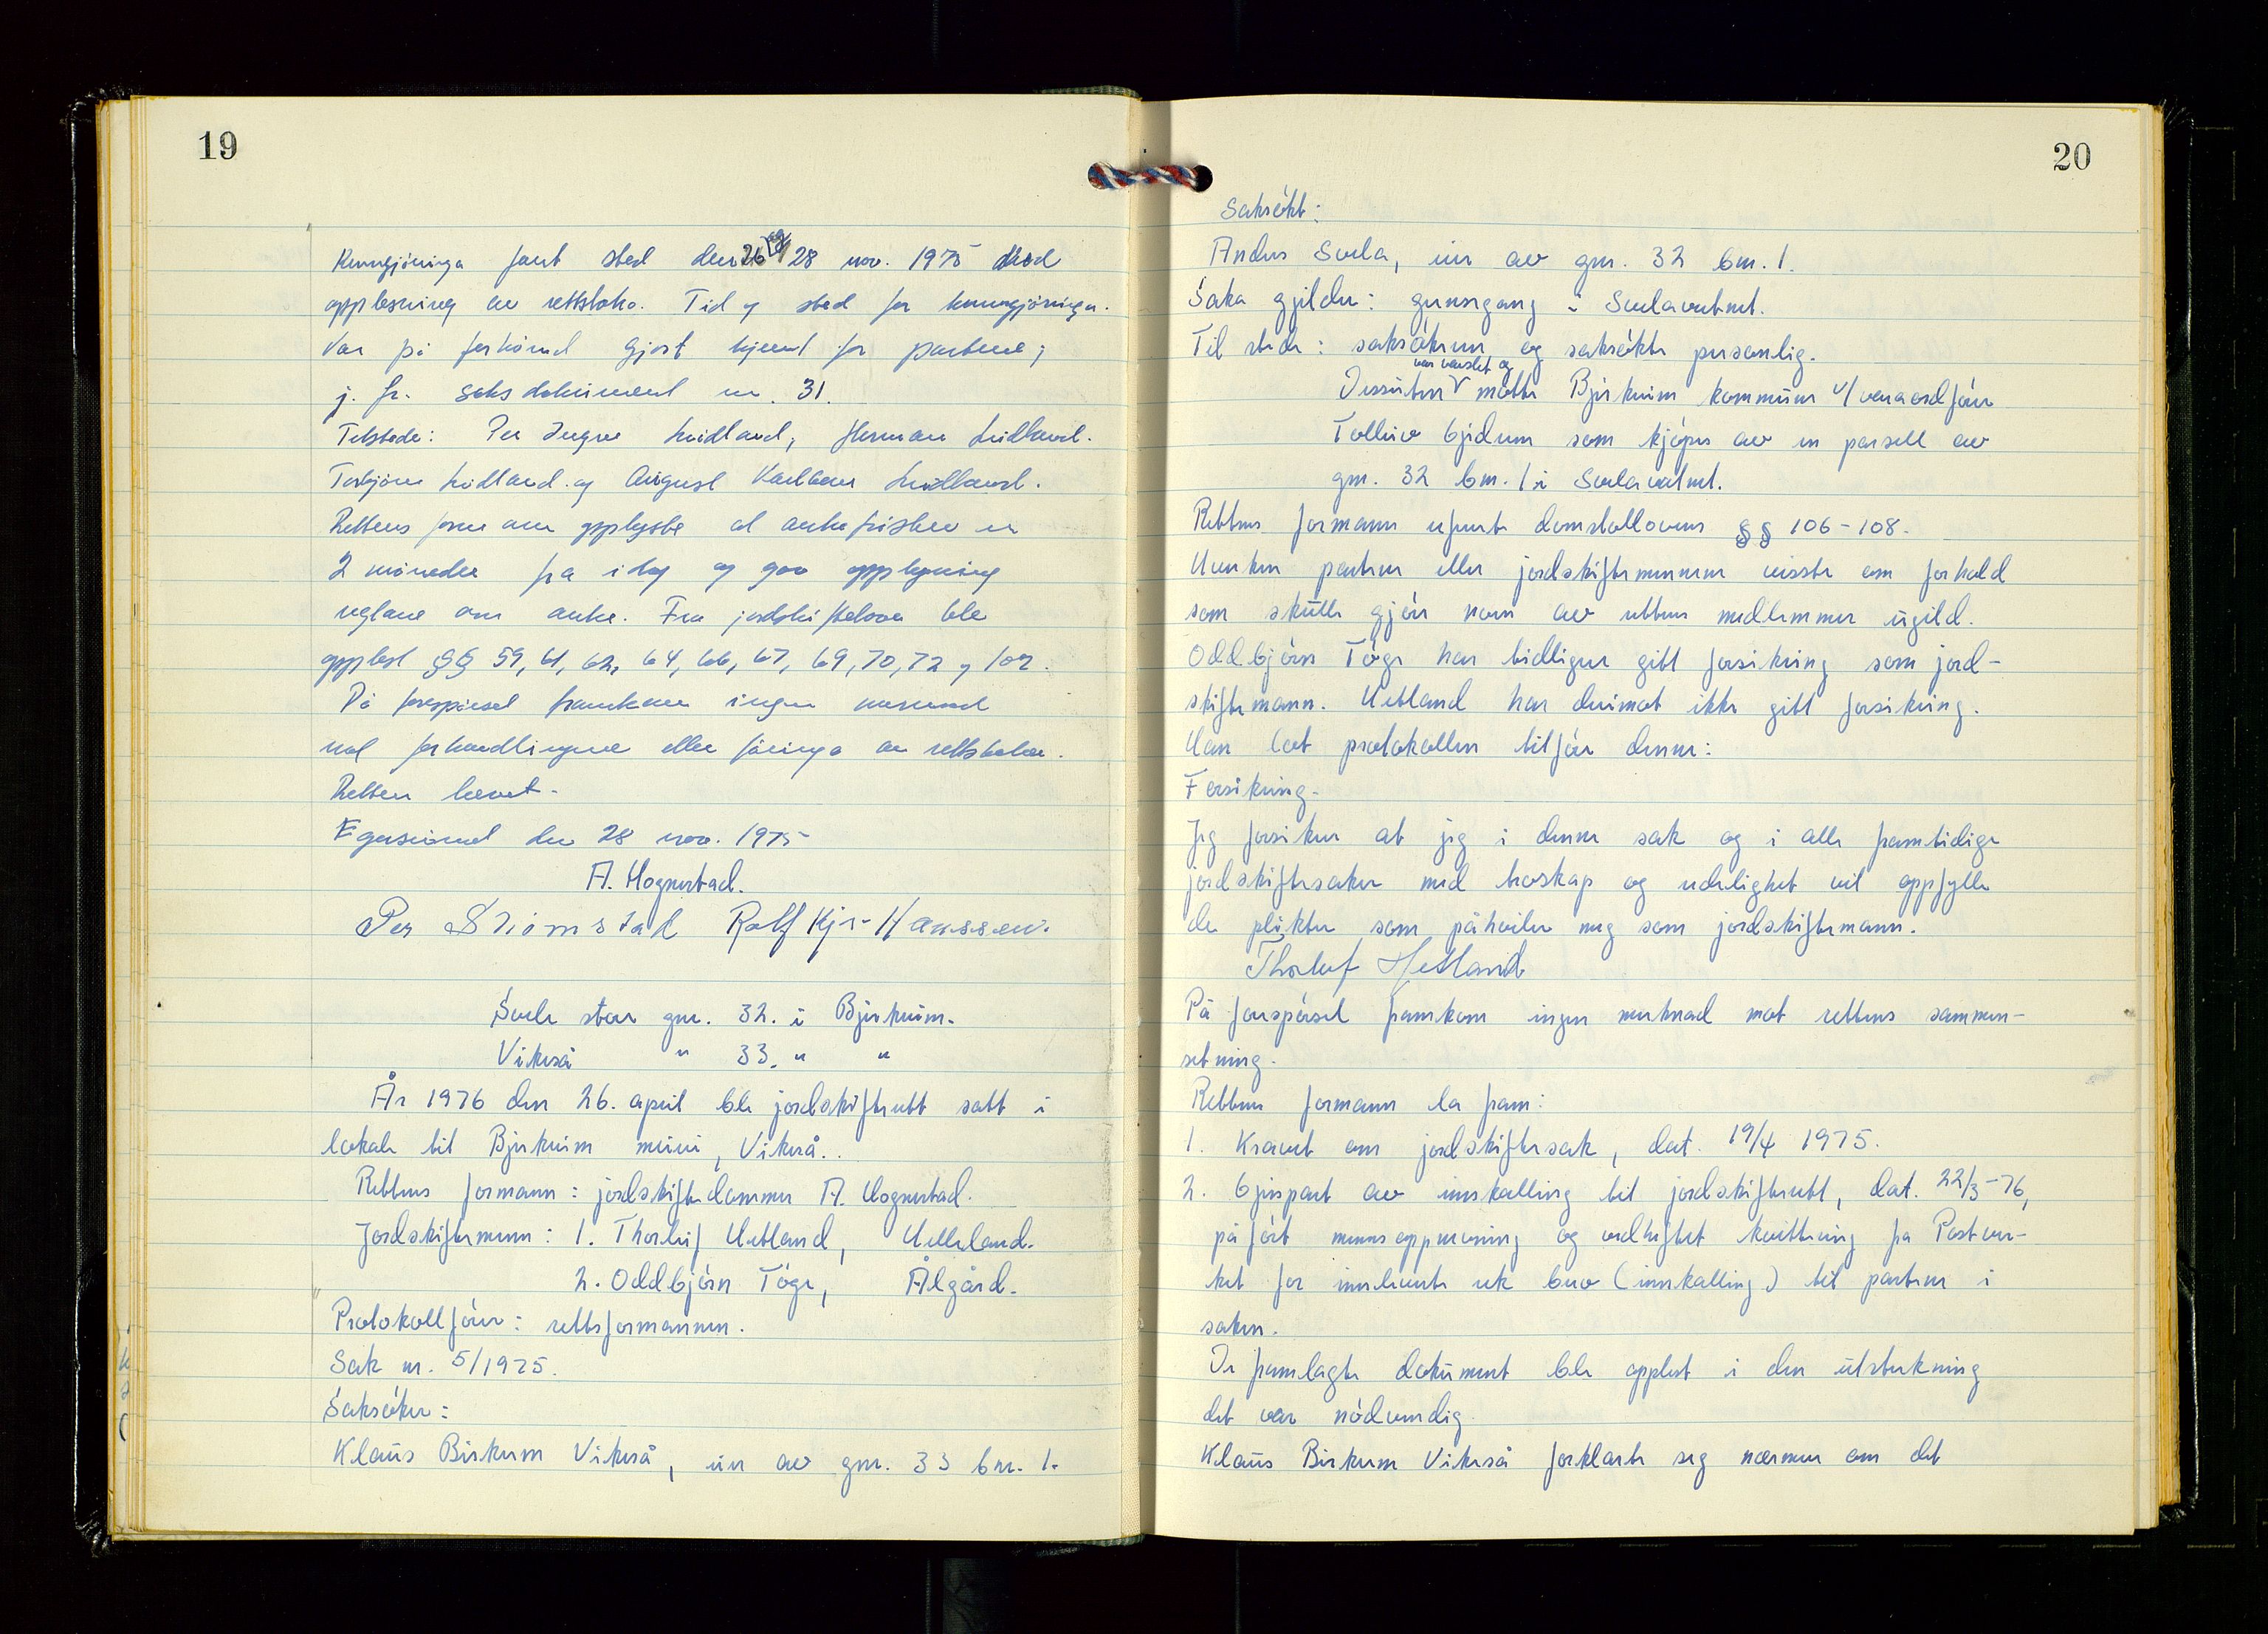 19
Kunngjøringa fant sted den 26 og 28 nov. 1975 med
opplesning av rettsboka. Tid og sted for kunngjøringa
var på forhånd gjort kjent for partene;
j. fr. saksdokument nr. 31.
Tilstede: Per Ingve Lridland, Herman Lridland.
Torbjørn Lridland og August Karlsen Lridland.
Rettens formann opplyste at ankefristen er
2 måneder fra idag og gav opplysning
reglane om anke. Fra jordskifteloven ble
opplest §§ 59, 61, 62, 64, 66, 67, 69, 70, 72 og 102.
På forespørsel framkom ingen merknad
mot forhandlingene eller føringa av rettsboka.
Retten hevet.
Egersund den 28 nov. 1975
A. Hognestad.
Per Strømstad Rolf Kjr-Hanssen.
Svele står gnr. 32. i Bjerkreim.
Vikeså " 33. " "
År 1976 den 26. april ble jordskifterett satt i
lokale til Bjerkreim meieri, Vikeså.
Rettens formann: jordskiftedommer A. Hognestad.
Jordskiftemenn: 1. Thorleif Hetland, Helleland.
2. Oddbjørn Tøge, Ålgård.
Protokollfører: rettsformannen.
Sak nr. 5/1975.
Saksøker:
Klaus Birkrem Vikeså, eier av gnr. 33 bnr. 1.
20
Saksøkt:
Anders Svela, eier av gnr. 32 bnr. 1.
Saka gjelder: grensegang i Svelavatnet.
Til stede: saksøkeren og saksøkte personlig.
var varslet og
Dessuten møtte Bjerkreim kommune v/varaordfører
Tolleiv Gjedrem som kjøper av en parsell av
gnr. 32 bnr. 1 i Svelavatnet.
Rettens formann refererte domstollovens §§ 106-108.
Hverken partene eller jordskiftemennene visste om forhold
som skulle gjøre noen av rettens medlemmer ugild.
Oddbjørn Tøge har tidligere gitt forsikring som jord-
skiftemann. Hetland har derimot ikke gitt forsikring.
Han lot protokollen tilføre denne:
Forsikring.
Jeg forsikrer at jeg i denne sak og i alle framtidige
jordskiftesaker med troskap og redelighet vil oppfylle
de plikter som påhviler meg som jordskiftemann.
Thorleif Hetland
På forespørsel framkom ingen merknad mot rettens sammen-
setning.
Rettens formann la fram:
1. Kravet om jordskiftesak, dat. 19/4 1975.
2. Gjenpart av innkalling til jordskifterett, dat. 22/3-76,
påført mannsoppnevning og vedheftet kvittering fra Postver-
ket for innleverte rek. brev (innkalling) til partene i
saken.
De framlagte dokument ble opplest i den utstrekning
det var nødvendig.
Klaus Birkrem Vikeså forklarte seg nærmere om det